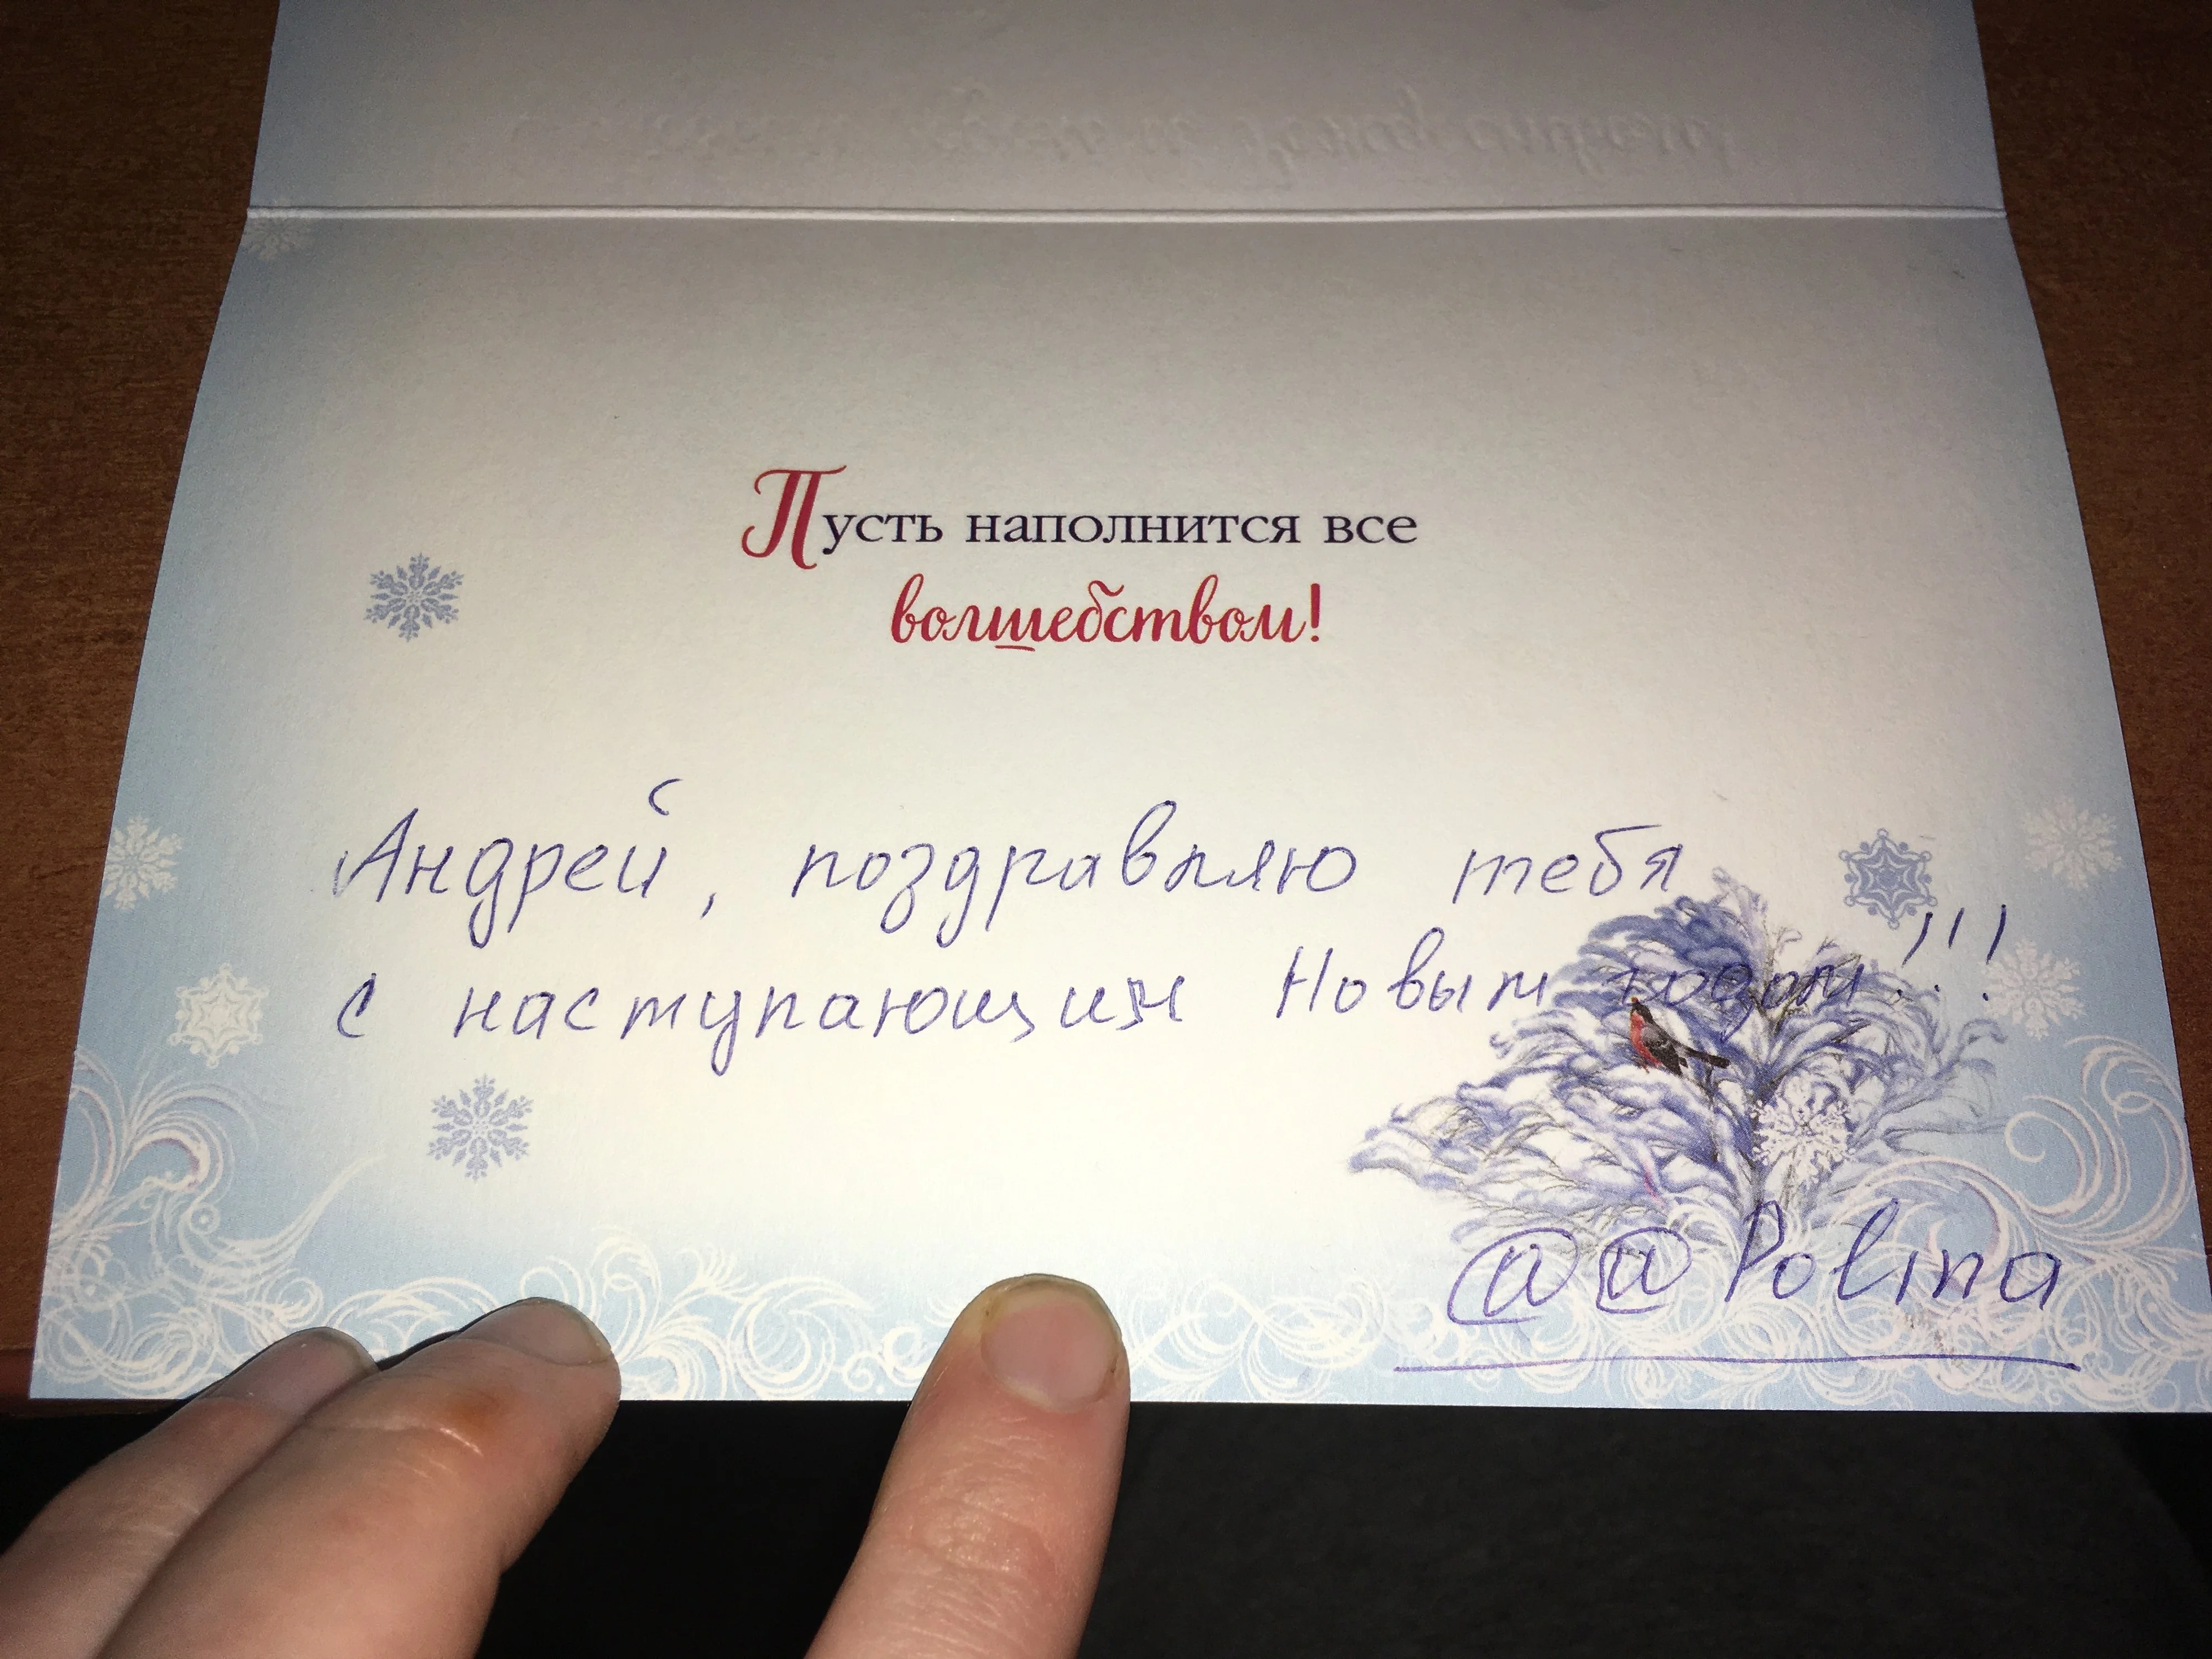 Пусть наполнится все
волшебством!
Андрей, поздравляю тебя
с наступающим Новым годом!!!
@@Polina